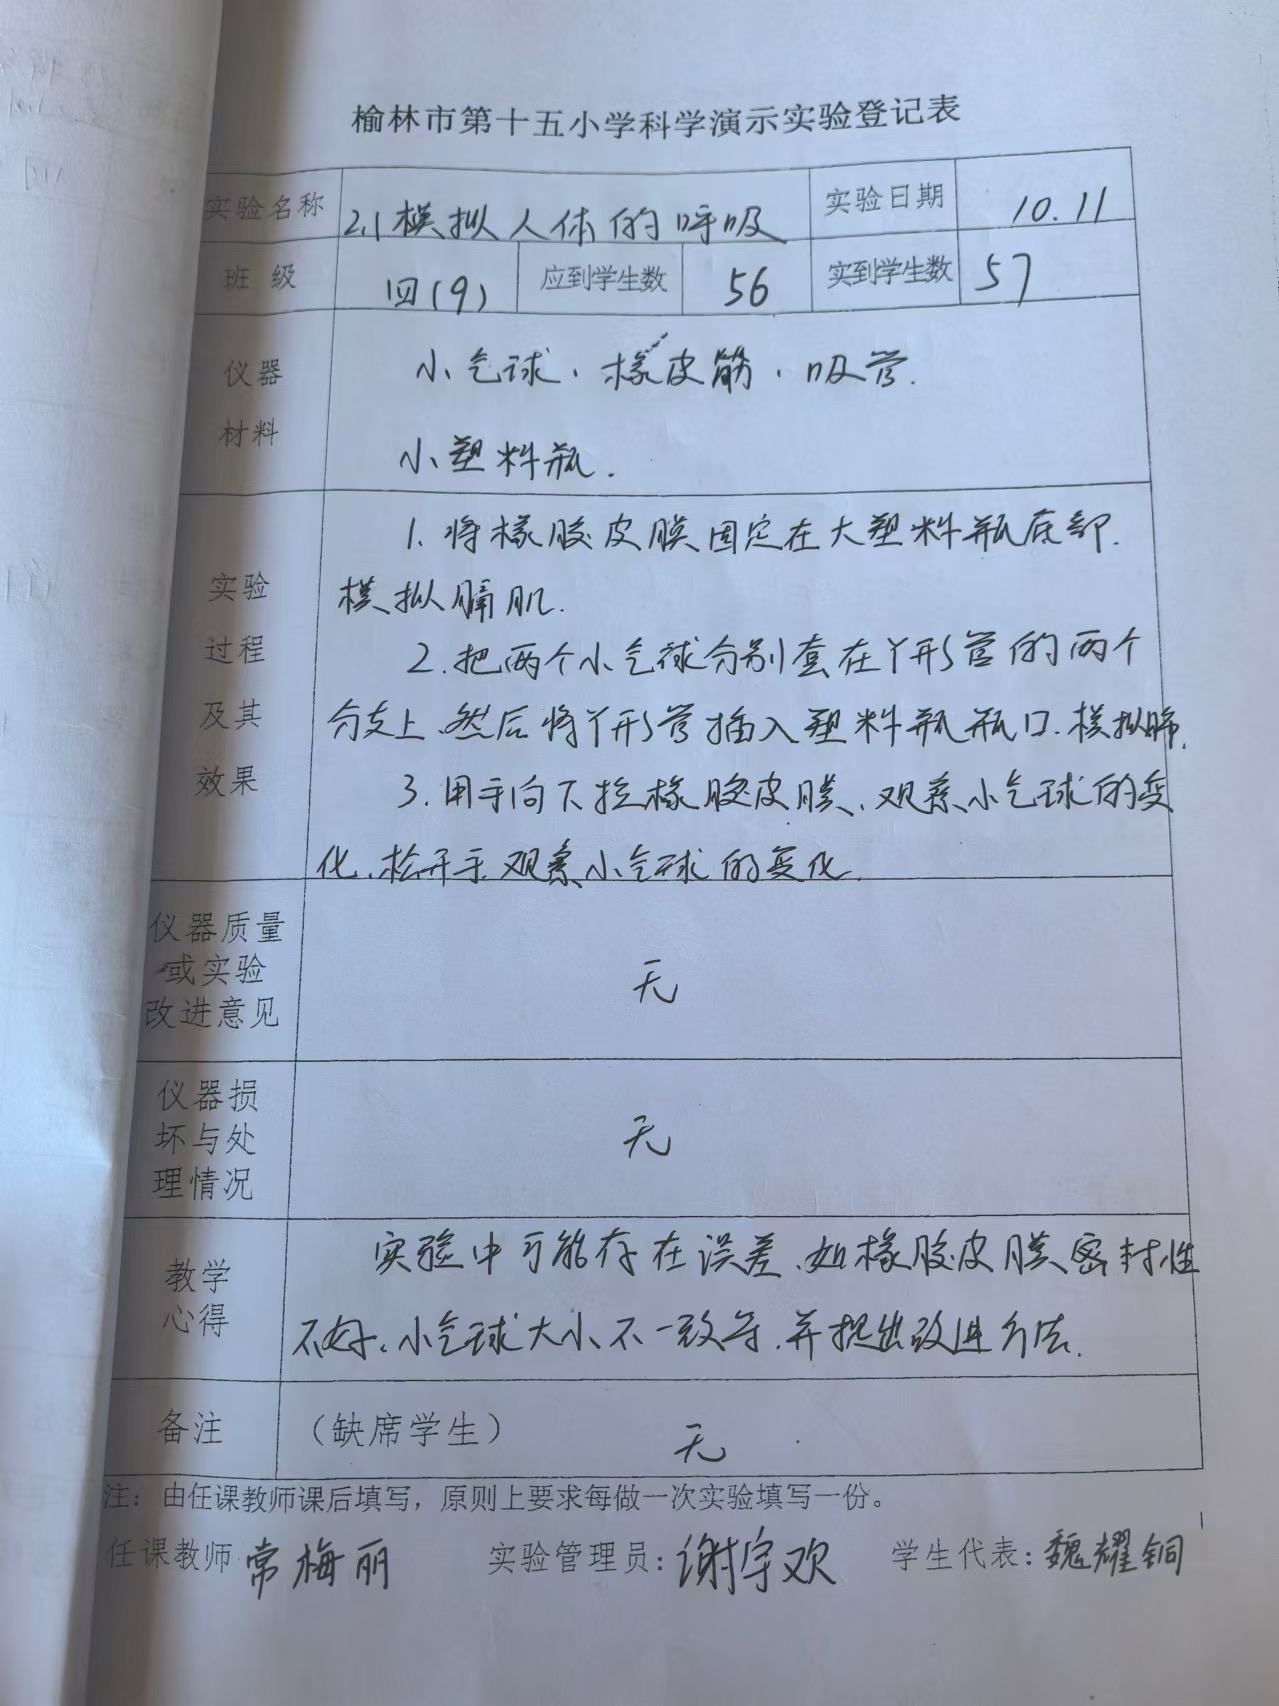 榆林市第十五小学科学演示实验登记表
实验名称 2.1模拟人体的呼吸 实验日期 10.11
班 级 四(9) 应到学生数 56 实到学生数 57
仪器 小气球、橡皮筋、吸管.
材料 小塑料瓶.
1. 将橡胶皮膜固定在大塑料瓶底部.
实验 模拟膈肌.
过程 2. 把两个小气球分别套在丫形管的两个
及其 分支上、然后将丫形管插入塑料瓶瓶口.模拟肺.
效果 3. 用手向下拉橡胶皮膜、观察小气球的变
化、松开手观察小气球的变化.
仪器质量
或实验 无
改进意见
仪器损
坏与处 无
理情况
教学 实验中可能存在误差、如橡胶皮膜密封性
心得 不好、小气球大小不一致等.并提出改进方法.
备注 （缺席学生） 无
注：由任课教师课后填写，原则上要求每做一次实验填写一份。
任课教师 常梅丽 实验管理员：谢宇欢 学生代表：魏耀铜